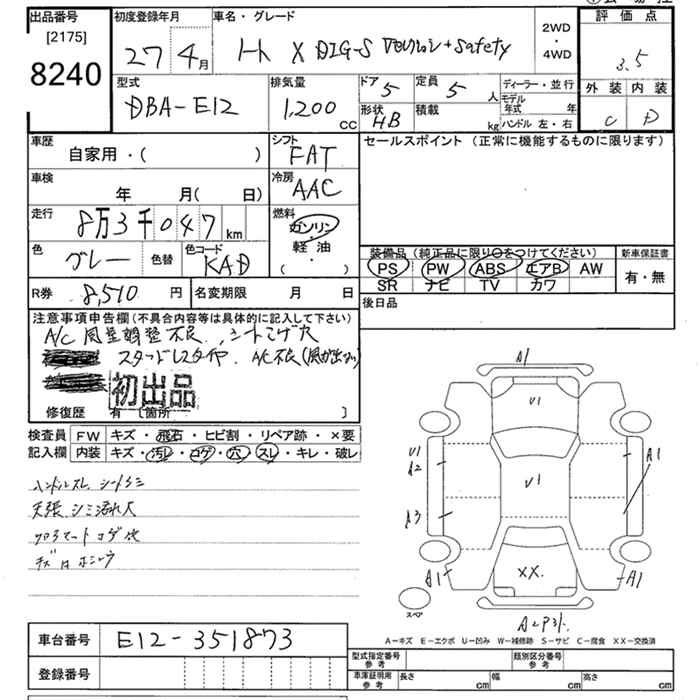 出品番号
[2175]
8240
初度登録年月
27 4月
車名・グレード
ノート X DIG-S Vセレクション+Safety
2WD
・
4WD
評価点
3.5
外装 内装
C D
型式
DBA-E12
排気量
1,200
cc
ドア 5
定員 5 人
形状 HB
積載 kg
ディーラー・並行
モデル
年式 年
ハンドル 左・右
車歴
自家用・( )
シフト
FAT
セールスポイント (正常に機能するものに限ります)
車検
年 月( 日)
冷房
AAC
走行
8万3千047 km
燃料
ガソリン
軽油
( ・ )
色
グレー
色替
色コード
KAD
装備品 (純正品に限り〇をつけてください)
PS PW ABS エアB AW
SR ナビ TV カワ
新車保証書
有・無
R券 8,510 円
名変期限 月 日
後日品
注意事項申告欄(不具合内容等は具体的に記入して下さい)
A/C 風量調整不良、シートコゲ穴
スタッドレスタイヤ、A/C不良(風が出ない)
初出品
修復歴 有 〔箇所 〕
検査員 FW キズ・飛石・ヒビ割・リペア跡・×要
記入欄 内装 キズ・汚レ・コゲ・穴・スレ・キレ・破レ
ハンドルスレ シートシミ
天張シミ汚れ大
フロアマットコゲ他
キズ
A1
U1
U1
A2
U1
A1
A3
A1
XX.
A1
スペア
A2P31.
A-キズ E-エクボ U-凹み W-補修跡 S-サビ C-腐食 XX-交換済
車台番号 E12-351873
登録番号
型式指定番号
参考
類別区分番号
参考
車庫証明用
参考
長さ cm 幅 cm 高さ cm